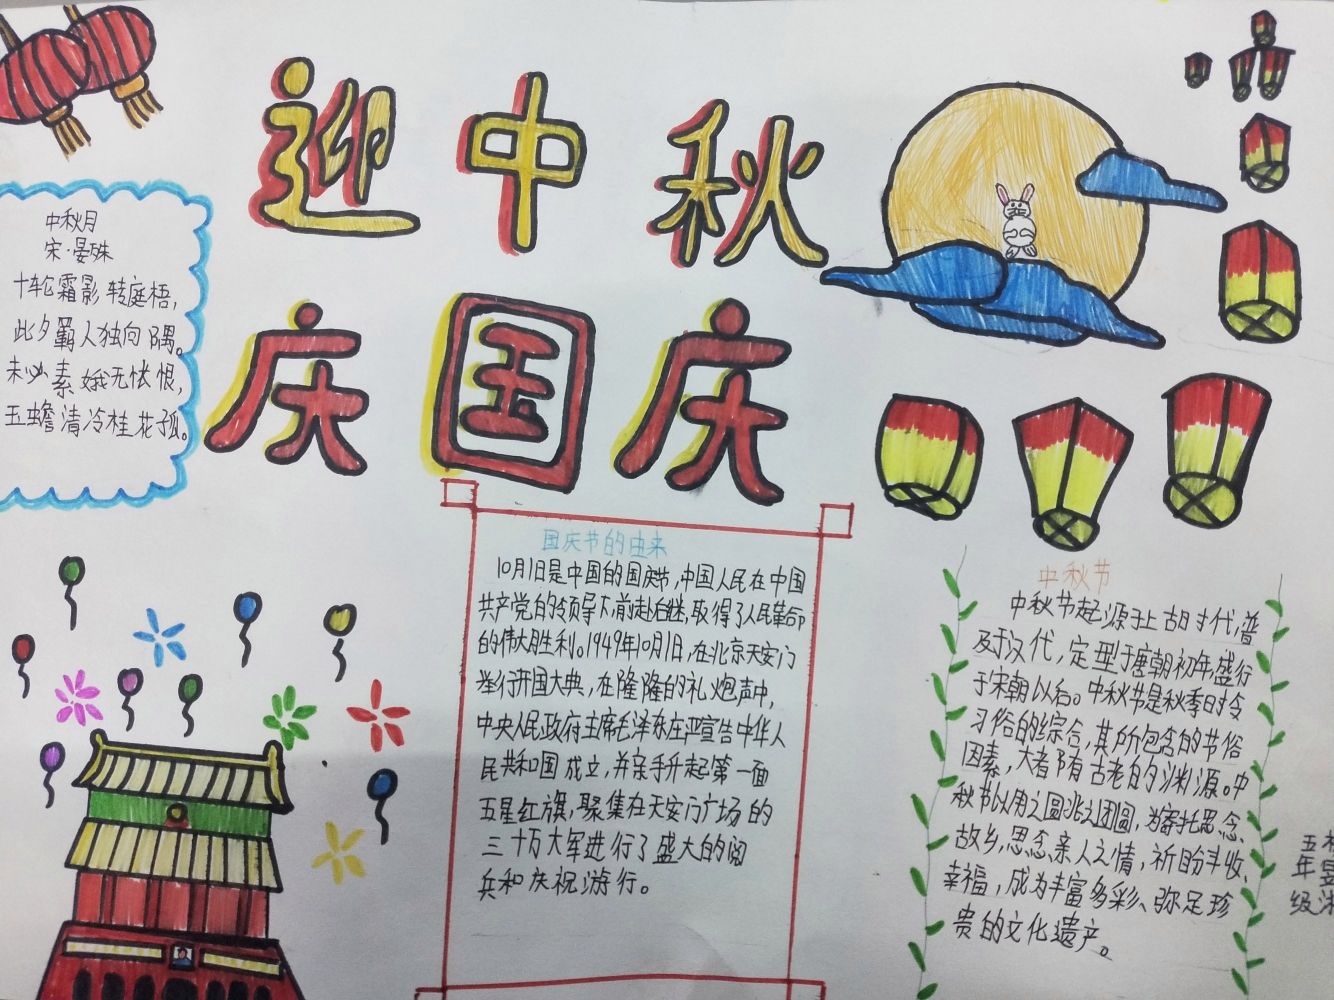 迎中秋
庆国庆
中秋月
宋·晏殊
十轮霜影转庭梧，
此夕羁人独向隅。
未必素娥无怅恨，
玉蟾清冷桂花孤。
国庆节的由来
10月1日是中国的国庆节，中国人民在中国
共产党的领导下，前赴后继，取得了人民革命
的伟大胜利。1949年10月1日，在北京天安门
举行开国大典，在隆隆的礼炮声中，
中央人民政府主席毛泽东庄严宣告中华人
民共和国成立，并亲手升起第一面
五星红旗，聚集在天安门广场的
三十万大军进行了盛大的阅
兵和庆祝游行。
中秋节
中秋节起源于上古时代，普
及于汉代，定型于唐朝初年，盛行
于宋朝以后。中秋节是秋季时令
习俗的综合，其所包含的节俗
因素，大者陏有古老的渊源。中
秋节以用之圆兆之团圆，为寄托思念
故乡，思念亲人之情，祈盼丰收、
幸福，成为丰富多彩、弥足珍
贵的文化遗产。
五年级